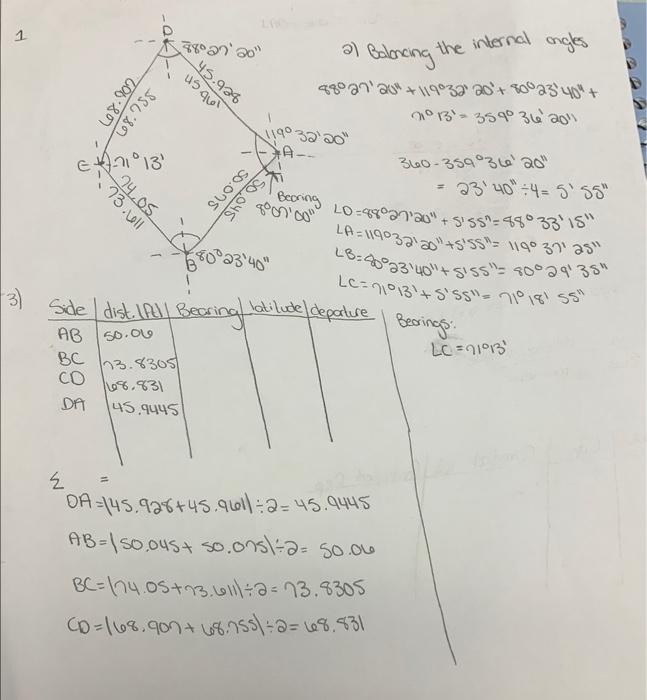 1
D
88°27'20"
68.907
68.755
45.928
45.961
119°32'20"
A
C
71°13'
74.05
73.611
50.075
50.045
Bearing
8°07'00"
B
80°23'40"
2) Balancing the internal angles
88°27'20" + 119°32'20" + 80°23'40" +
71°13' = 359° 36' 20"
360 - 359°36' 20"
= 23' 40" ÷ 4 = 5' 55"
∠D = 88°27'20" + 5'55" = 88° 33' 15"
∠A = 119°32'20" + 5'55" = 119° 37' 25"
∠B = 80°23'40" + 5'55" = 80° 29' 35"
∠C = 71°13' + 5'55" = 71° 18' 55"
3)
Side dist. (ft) Bearing latitude departure
AB 50.06
BC 73.8305
CD 68.831
DA 45.9445
Bearings:
∠C = 71°13'
Σ =
DA = (45.928 + 45.961) ÷ 2 = 45.9445
AB = (50.045 + 50.075) ÷ 2 = 50.06
BC = (74.05 + 73.611) ÷ 2 = 73.8305
CD = (68.907 + 68.755) ÷ 2 = 68.831